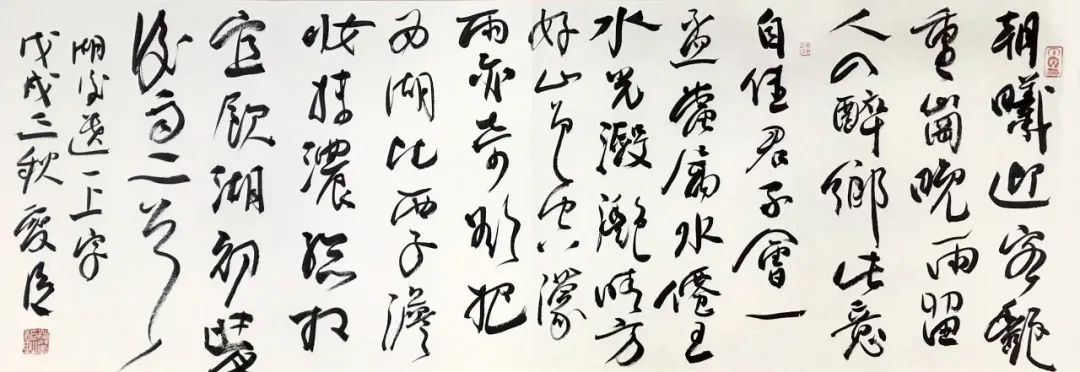 朝曦迎客艷
重崗晚雨留
人入醉鄉此意
自佳君子會一
盃當屬水僊王
水光瀲灩晴方
好山色空濛
雨亦奇欲把
西湖比西子澹
妝抹濃總相
宜飲湖初晴
後雨二首
湖後遺一上字
戊戌之秋